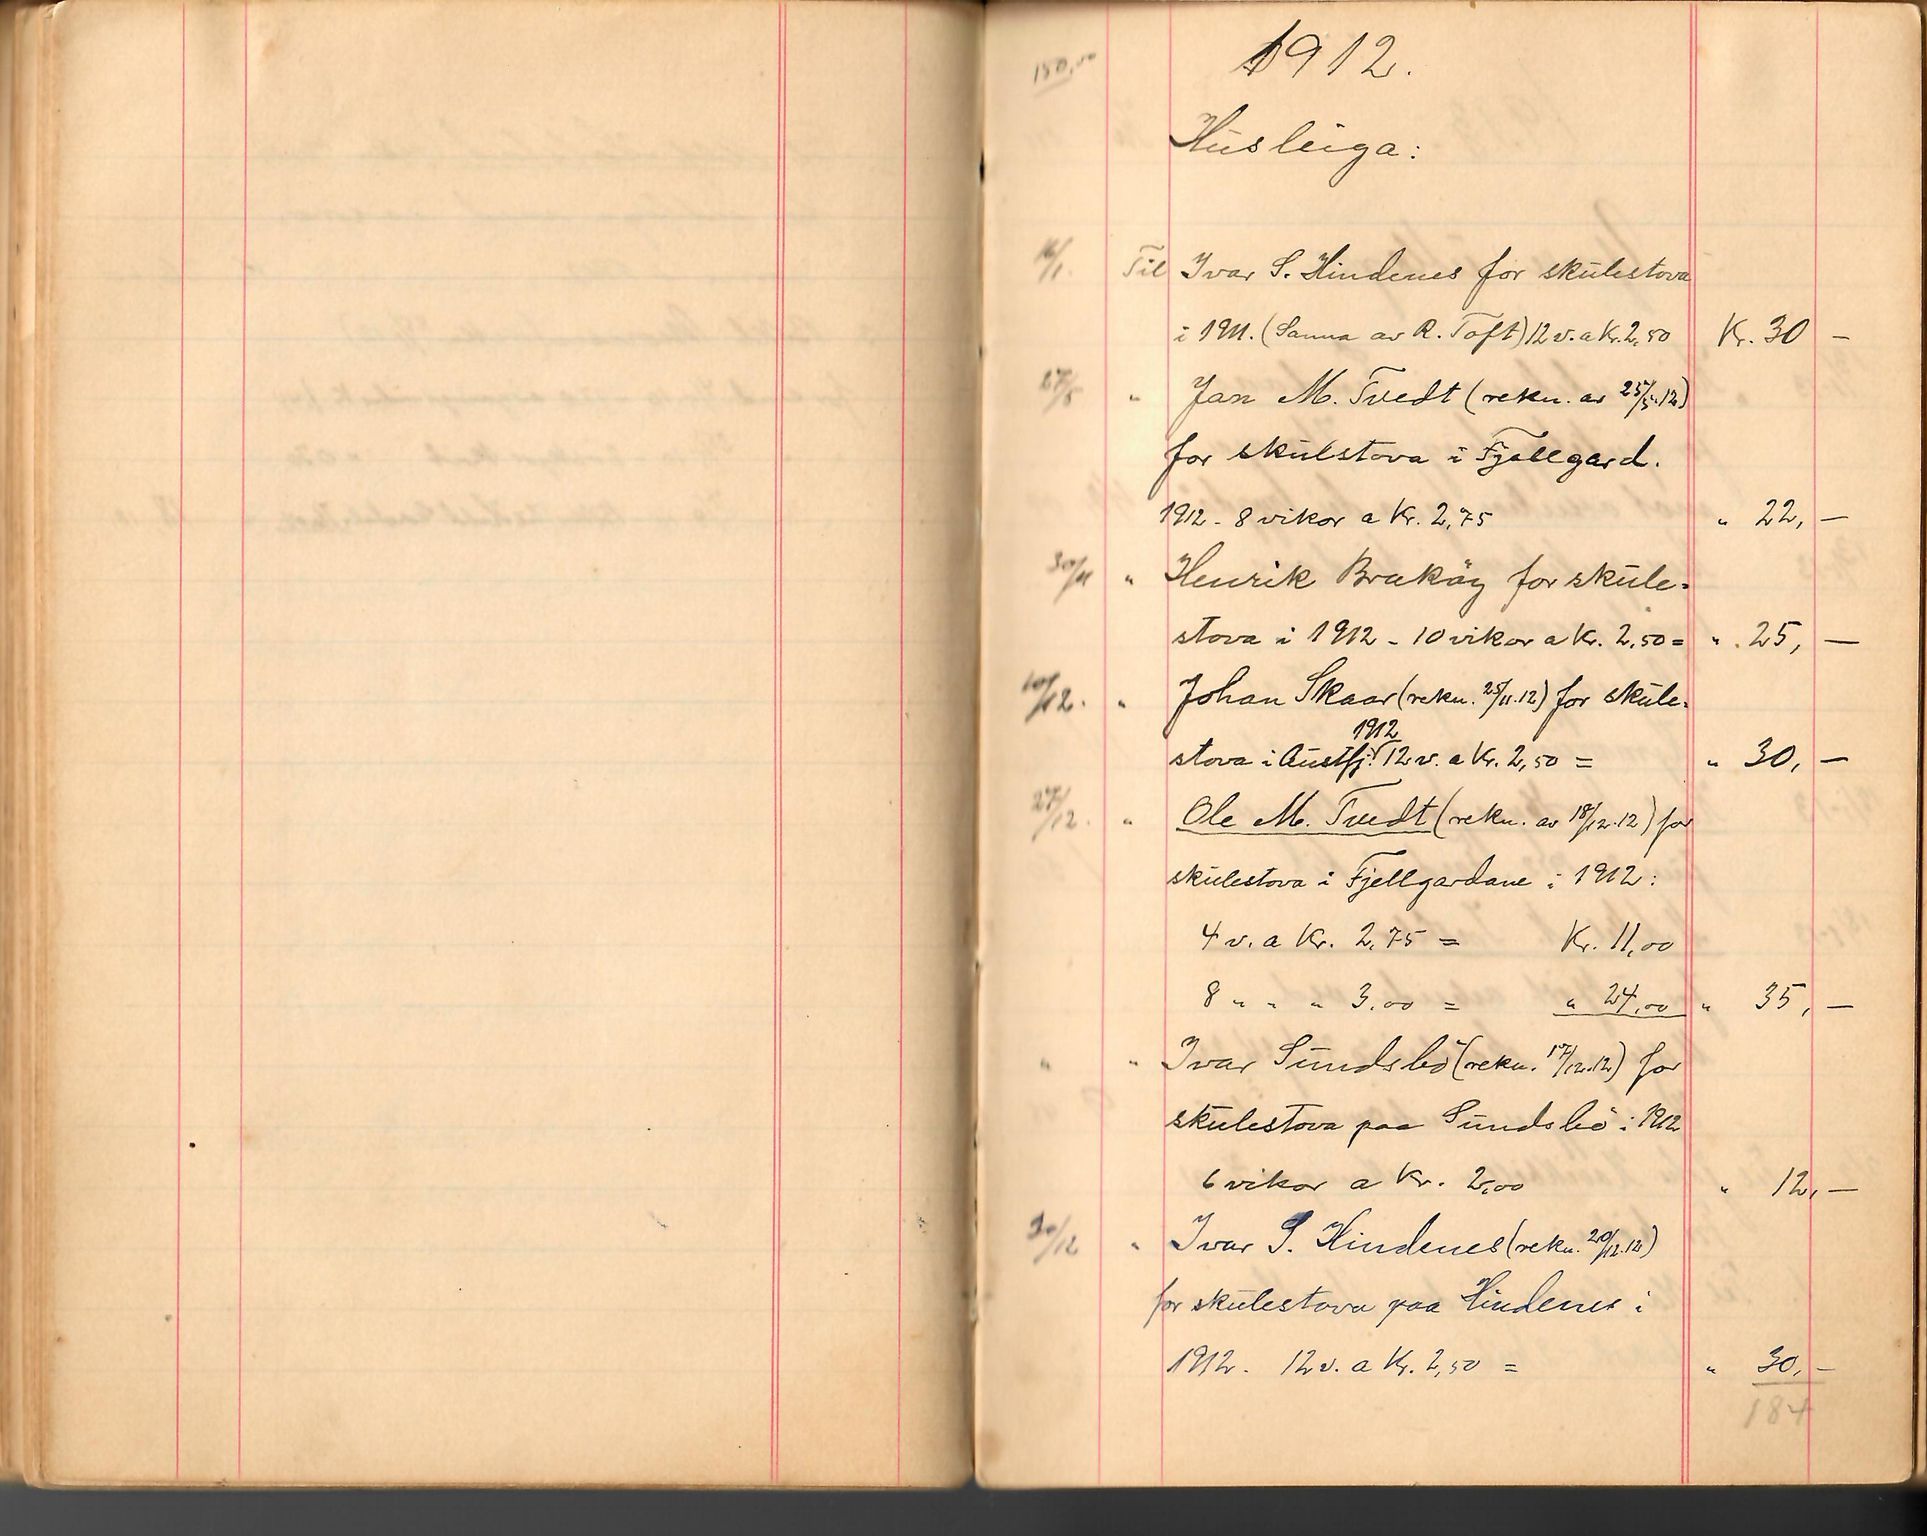 150,00
1912.
Husleiga:
16/1. Til Ivar S. Hindenes for skulestova
i 1911. (Sanna av R. Toft) 12 v. a Kr. 2,50 Kr. 30 —
27/5 " Jan M. Tvedt (rekn. av 25/5.12)
for skulstova i Fjellgard.
1912 - 8 vikor a Kr. 2,75 " 22, —
30/11 " Henrik Braköy for skule=
stova i 1912 - 10 vikor a Kr. 2,50 = " 25, —
10/12. " Johan Skaar (rekn. 25/11.12) for skule=
1912
stova i Austfj. 12 v. a Kr. 2,50 = " 30, —
27/12. " Ole M. Tvedt (rekn. av 18/12.12) for
skulestova i Fjellgardane i 1912:
4 v. a Kr. 2,75 = Kr. 11,00
8 " " " 3,00 = " 24,00 " 35, —
" " Ivar Sundsbö (rekn. 17/12.12) for
skulestova paa Sundsbö i 1912
6 vikor a Kr. 2,00 " 12, —
30/12 " Ivar S. Hindenes (rekn. 20/12.12)
for skulestova paa Hindenes i
1912. 12 v. a Kr. 2,50 = " 30, —
184